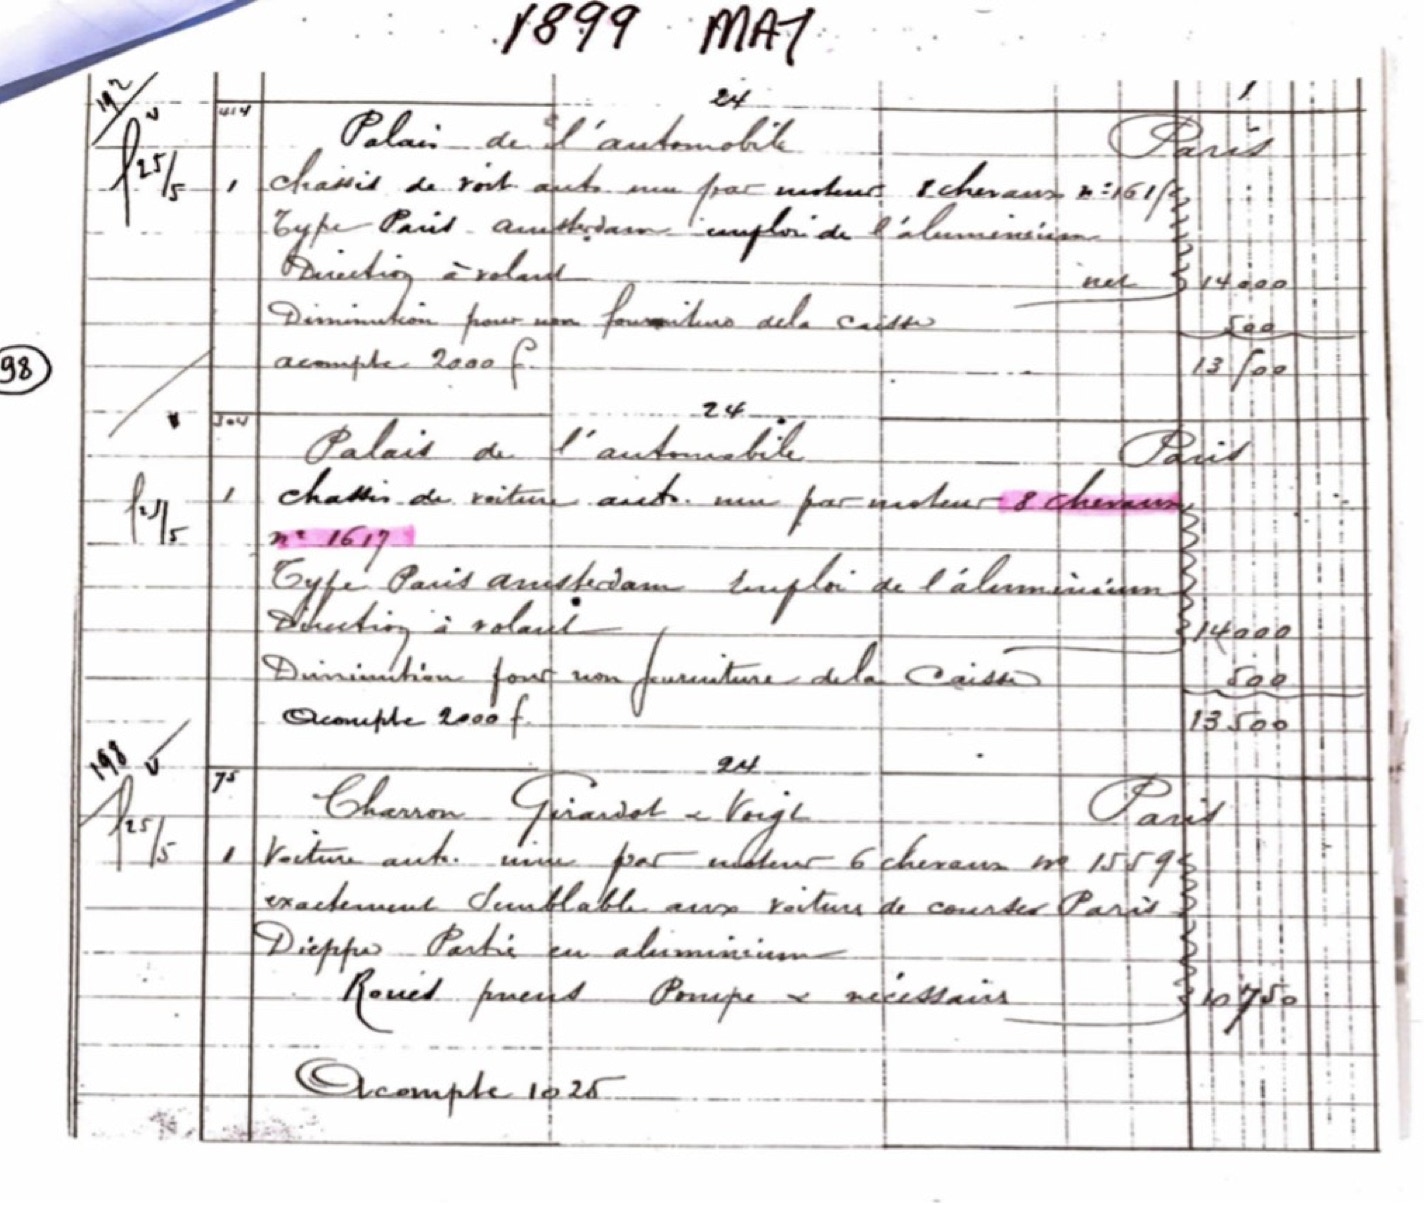 1899 MAY
24
192
414
Palais de l'automobile Paris
25/5 1 chassis de voit. auto. mu par moteur 8 chevaux n°
Type Paris amsterdam emploi de l'áluminium
Direction à volant net 14000
Diminution pour non fourniture dela caisse 500
98
acompte 2000 f. 13500
24
304
Palais de l'automobile Paris
1 chassis de voiture auto. mu par moteur 8 chevaux
25/5
n° 1617
Type Paris amsterdam Emploi de l'áluminium
Direction à volant 14000
Diminution pour non fourniture dela Caisse 500
Acompte 2000 f. 13500
198
24
75
Charron Girardot & Voigt Paris
25/5 1 Voiture auto. mue par moteur 6 chevaux n° 1559
exactement Semblable aux voitures de courses Paris
Dieppe Partie en aluminium
Roues pneus Pompe & nécessaire 10750
Acompte 1025